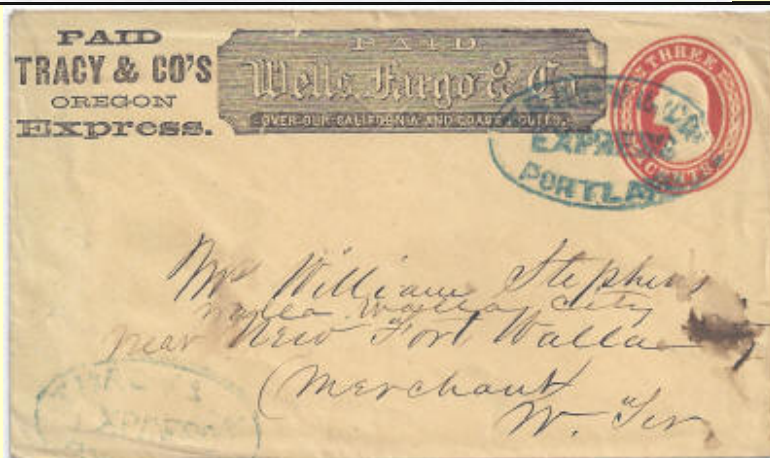 PAID
TRACY & CO'S
OREGON
Express.
PAID
Wells, Fargo & Co
OVER OUR CALIFORNIA AND COAST ROUTES.
THREE
CENTS
TRACY & CO'S
EXPRESS
PORTLAND
Mr William Stephens
Walla Walla City
near New Fort Walla
(Merchant
W. Ter